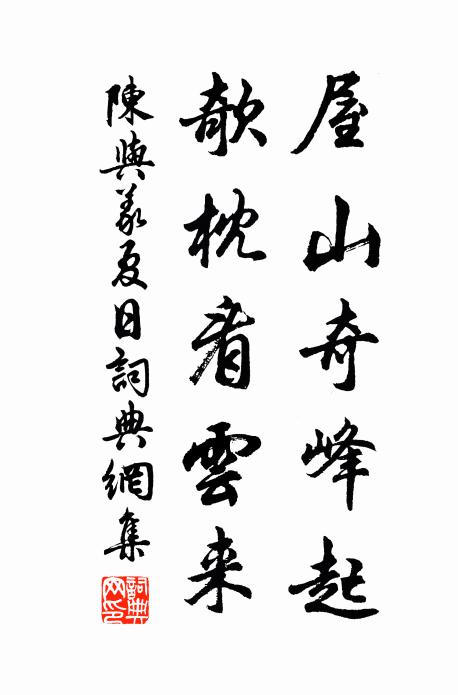 屋山奇峰起
欹枕看雲来
陳與義夏日詞典網集
詞典网印